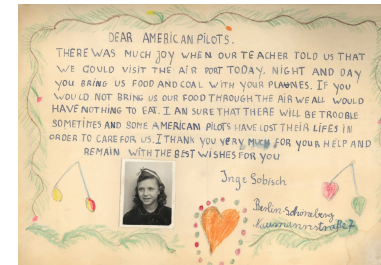 DEAR AMERICAN PILOTS.
THERE WAS MUCH JOY WHEN OUR TEACHER TOLD US THAT
WE COULD VISIT THE AIR PORT TODAY. NIGHT AND DAY
YOU BRING US FOOD AND COAL WITH YOUR PLANES. IF YOU
WOULD NOT BRING US OUR FOOD THROUGH THE AIR WE ALL WOULD
HAVE NOTHING TO EAT. I AM SURE THAT THERE WILL BE TROUBLE
SOMETIMES AND SOME AMERICAN PILOTS HAVE LOST THEIR LIFES IN
ORDER TO CARE FOR US. I THANK YOU VERY MUCH FOR YOUR HELP AND
REMAIN WITH THE BEST WISHES FOR YOU
Inge Sobisch
Berlin-Schöneberg
Naumannstraße 7